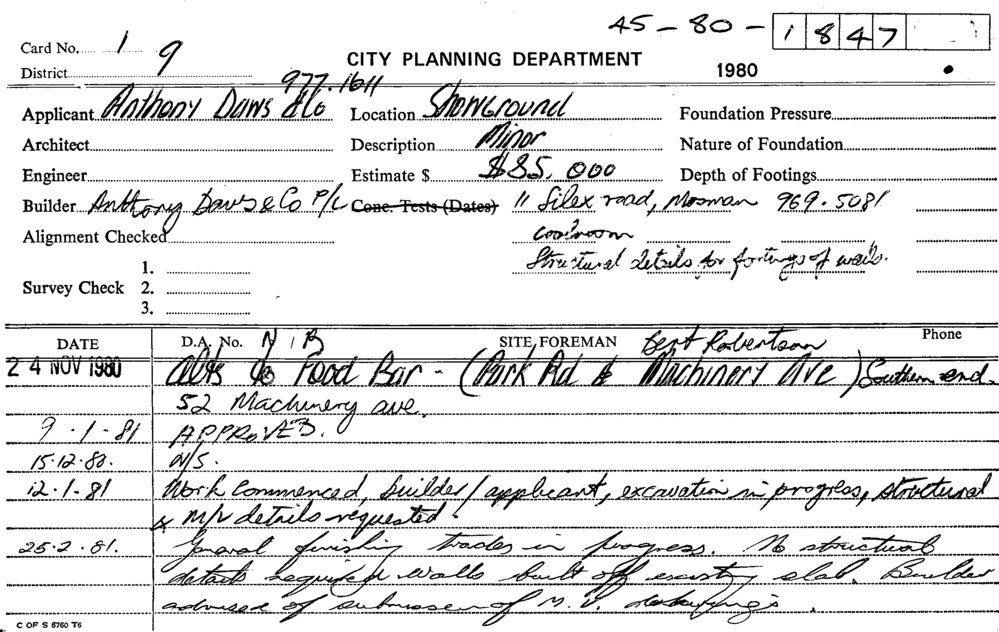 45-80-1847
Card No. 1 9
CITY PLANNING DEPARTMENT 1980
District
977.1611
Applicant Anthony Daws & Co Location Showground Foundation Pressure
Architect Description Minor Nature of Foundation
Engineer Estimate $ $85,000 Depth of Footings
Builder Anthony Daws & Co P/L Conc. Tests (Dates) 11 Silex road, Mosman 969.5081
Alignment Checked coolroom
Structural details for footings of walls.
1.
Survey Check 2.
3.
DATE D.A. No. N/B SITE FOREMAN Bert Robertson Phone
24 NOV 1980 Alts to Food Bar - (Park Rd & Machinery Ave) Southern end.
52 Machinery ave.
9.1.81 APPROVED.
15.12.80. N/S.
12.1.81 Work commenced, builder/applicant, excavation in progress, structural
& M/V details requested.
25.2.81. General finishing trades in progress. No structural
details required walls built off existing slab. Builder
advised of submission of M.V.
C OF S 6760 T6